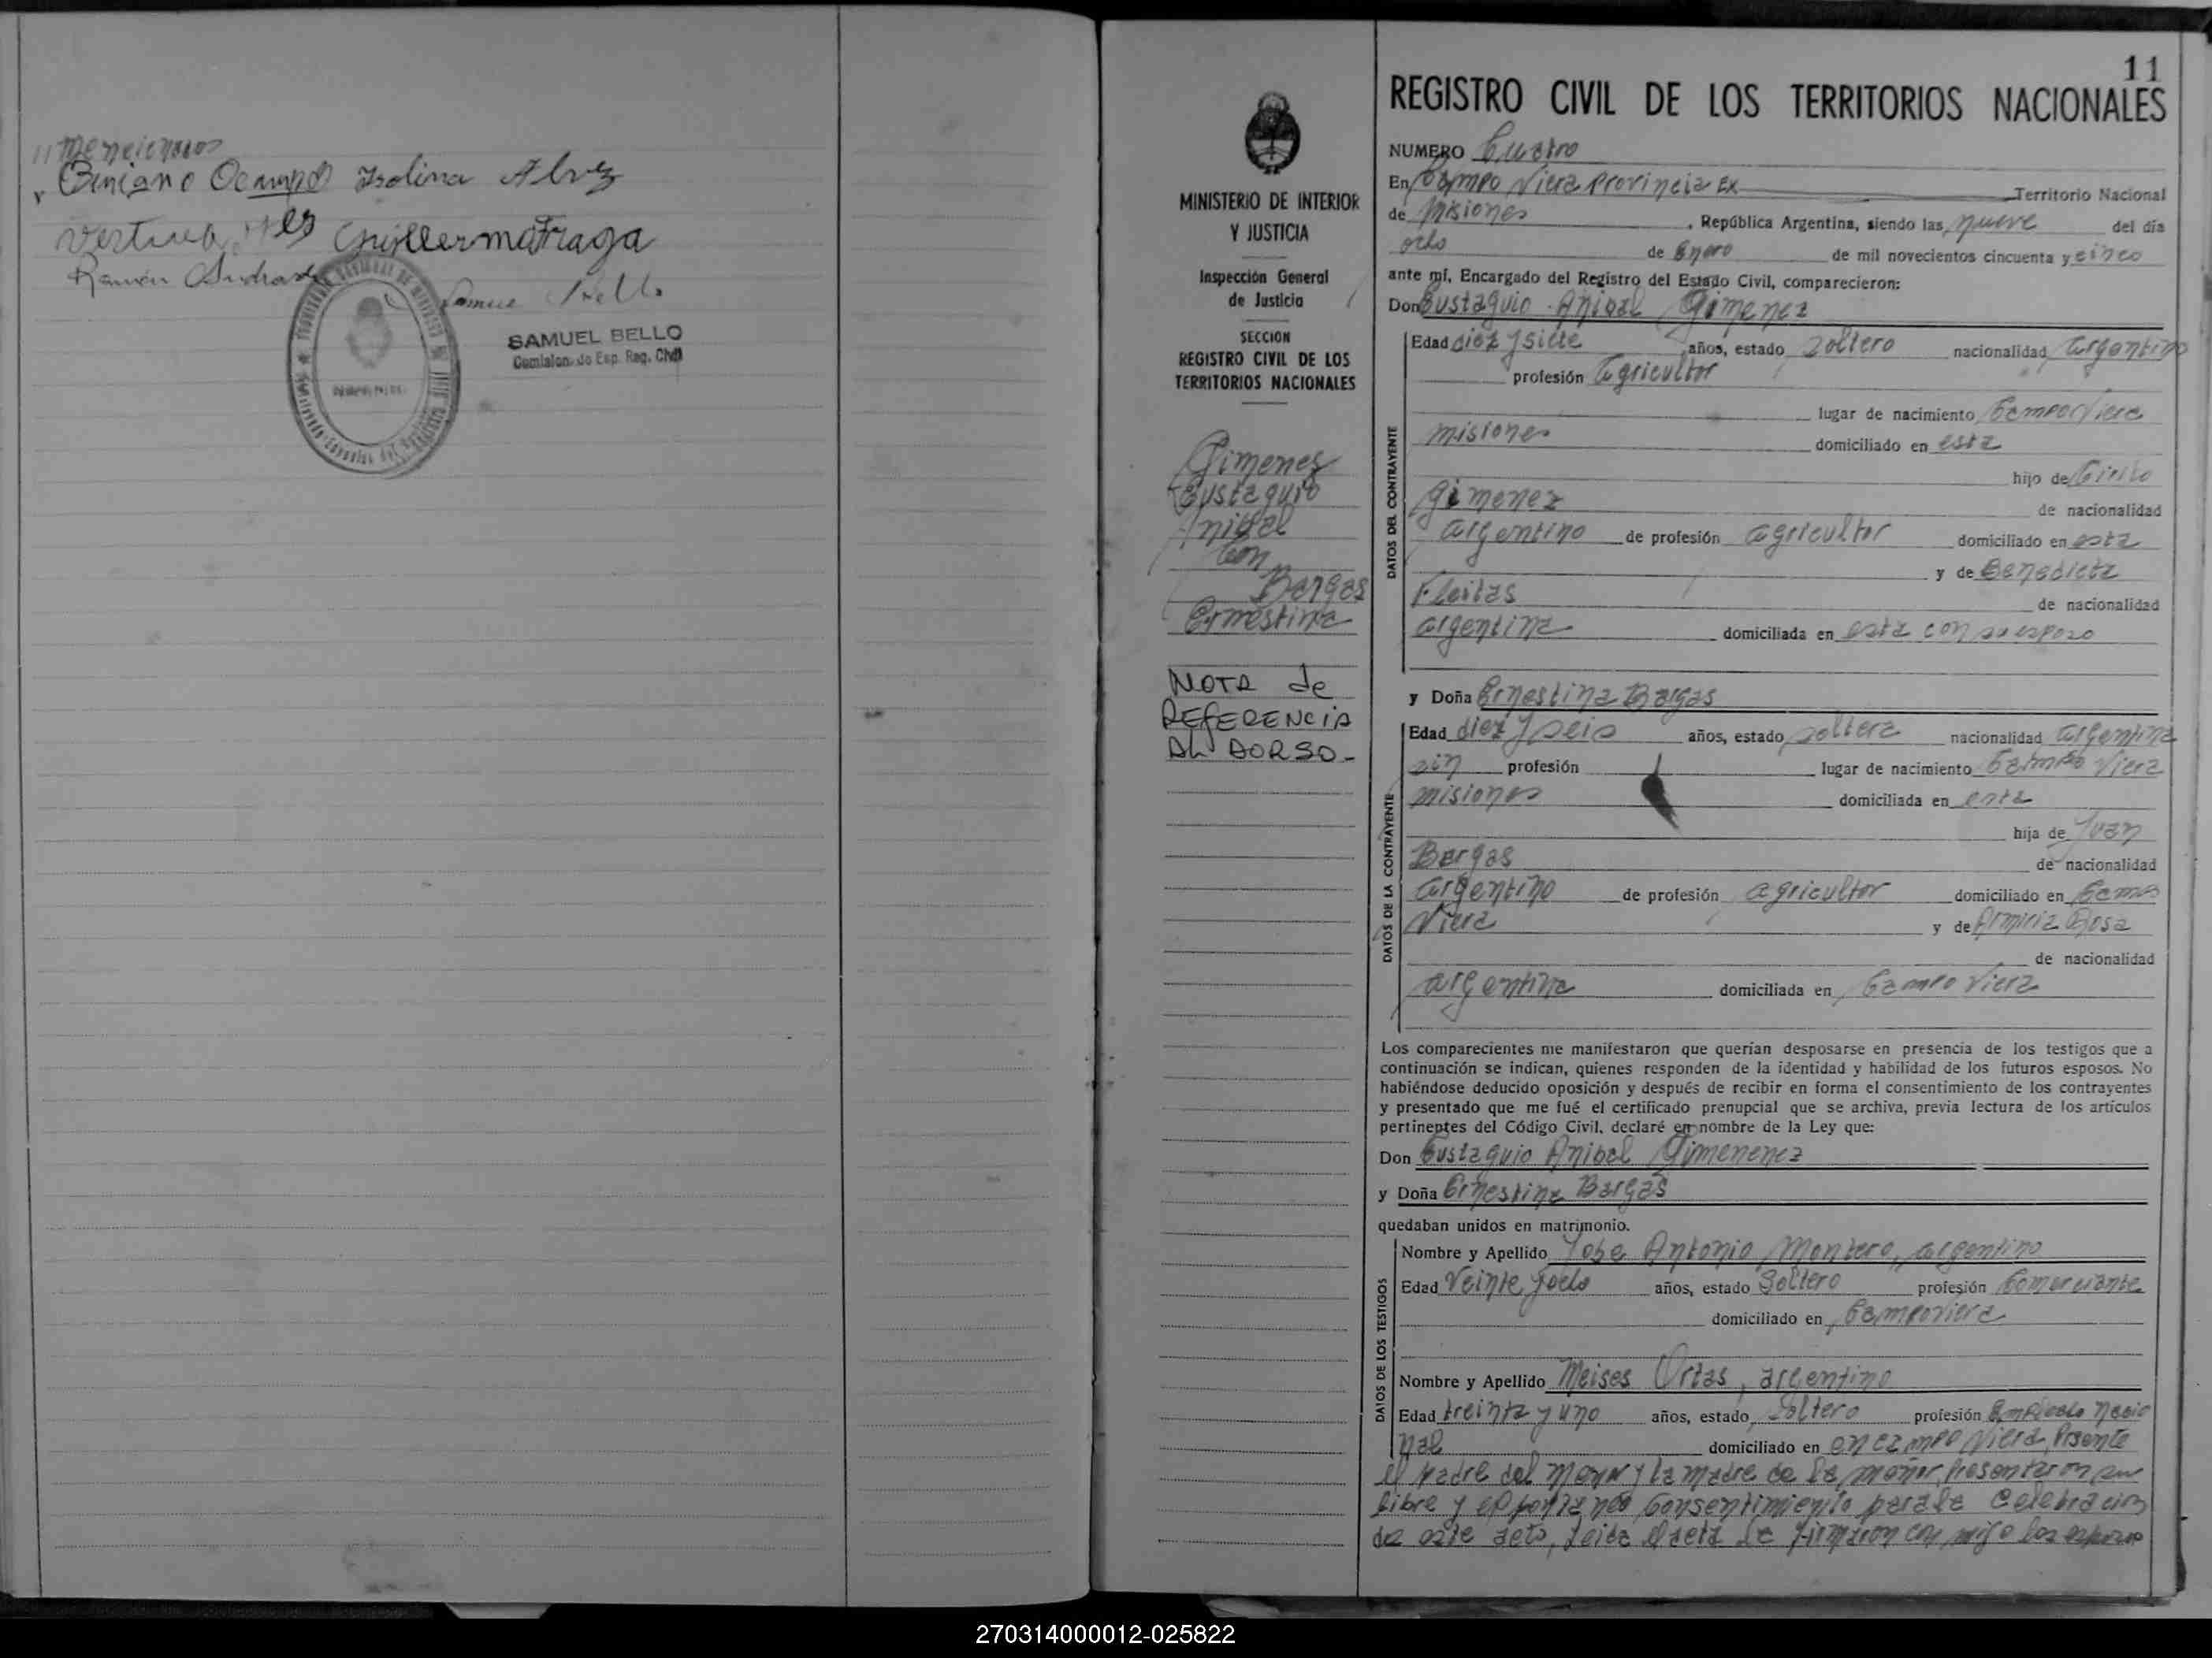 11 mencionados
Isolina Alvez
Guillerma Fraga
Ramón Andrade
Samuel Bello
SAMUEL BELLO
Comisionado Esp. Reg. Civil
11
REGISTRO CIVIL DE LOS TERRITORIOS NACIONALES
MINISTERIO DE INTERIOR
Y JUSTICIA
Inspección General
de Justicia
SECCION
REGISTRO CIVIL DE LOS
TERRITORIOS NACIONALES
Gimenez
Eustaquio
Anibal
Con
Bargas
Ernestina
NOTA de
REFERENCIA
AL DORSO-
NUMERO Cuatro
En Campo Viera Provincia Ex Territorio Nacional
de Misiones, República Argentina, siendo las nueve del día
ocho de Enero de mil novecientos cincuenta y cinco
ante mí, Encargado del Registro del Estado Civil, comparecieron:
Don Eustaquio Anibal Gimenez
DATOS DEL CONTRAYENTE
Edad diez y siete años, estado soltero nacionalidad argentino
profesión agricultor
lugar de nacimiento Campo Viera
misiones domiciliado en esta
hijo de Cirilo
Gimenez de nacionalidad
argentino de profesión agricultor domiciliado en esta
y de Benedicta
Fleitas de nacionalidad
argentina domiciliada en esta con su esposo
y Doña Ernestina Bargas
DATOS DE LA CONTRAYENTE
Edad diez y seis años, estado soltera nacionalidad argentina
sin profesión lugar de nacimiento Campo Viera
misiones domiciliada en esta
hija de Juan
Bargas de nacionalidad
argentino de profesión agricultor domiciliado en Campo
Viera y de Rosa
de nacionalidad
argentina domiciliada en Campo Viera
Los comparecientes me manifestaron que querían desposarse en presencia de los testigos que a
continuación se indican, quienes responden de la identidad y habilidad de los futuros esposos. No
habiéndose deducido oposición y después de recibir en forma el consentimiento de los contrayentes
y presentado que me fué el certificado prenupcial que se archiva, previa lectura de los artículos
pertinentes del Código Civil, declaré en nombre de la Ley que:
Don Eustaquio Anibal Gimenenez
y Doña Ernestina Bargas
quedaban unidos en matrimonio.
DATOS DE LOS TESTIGOS
Nombre y Apellido Jose Antonio Montero, argentino
Edad Veinte y ocho años, estado Soltero profesión Comerciante
domiciliado en Campo viera
Nombre y Apellido Meises Ortas, argentino
Edad treinta y uno años, estado Soltero profesión Empleado Nacio
nal domiciliado en en campo Viera, Prsente
el padre del menor y la madre de la menor, presentaron su
libre y consentimiento para la celebracion
de este acto, Leida el acta la firmaron con migo los esposos
270314000012-025822